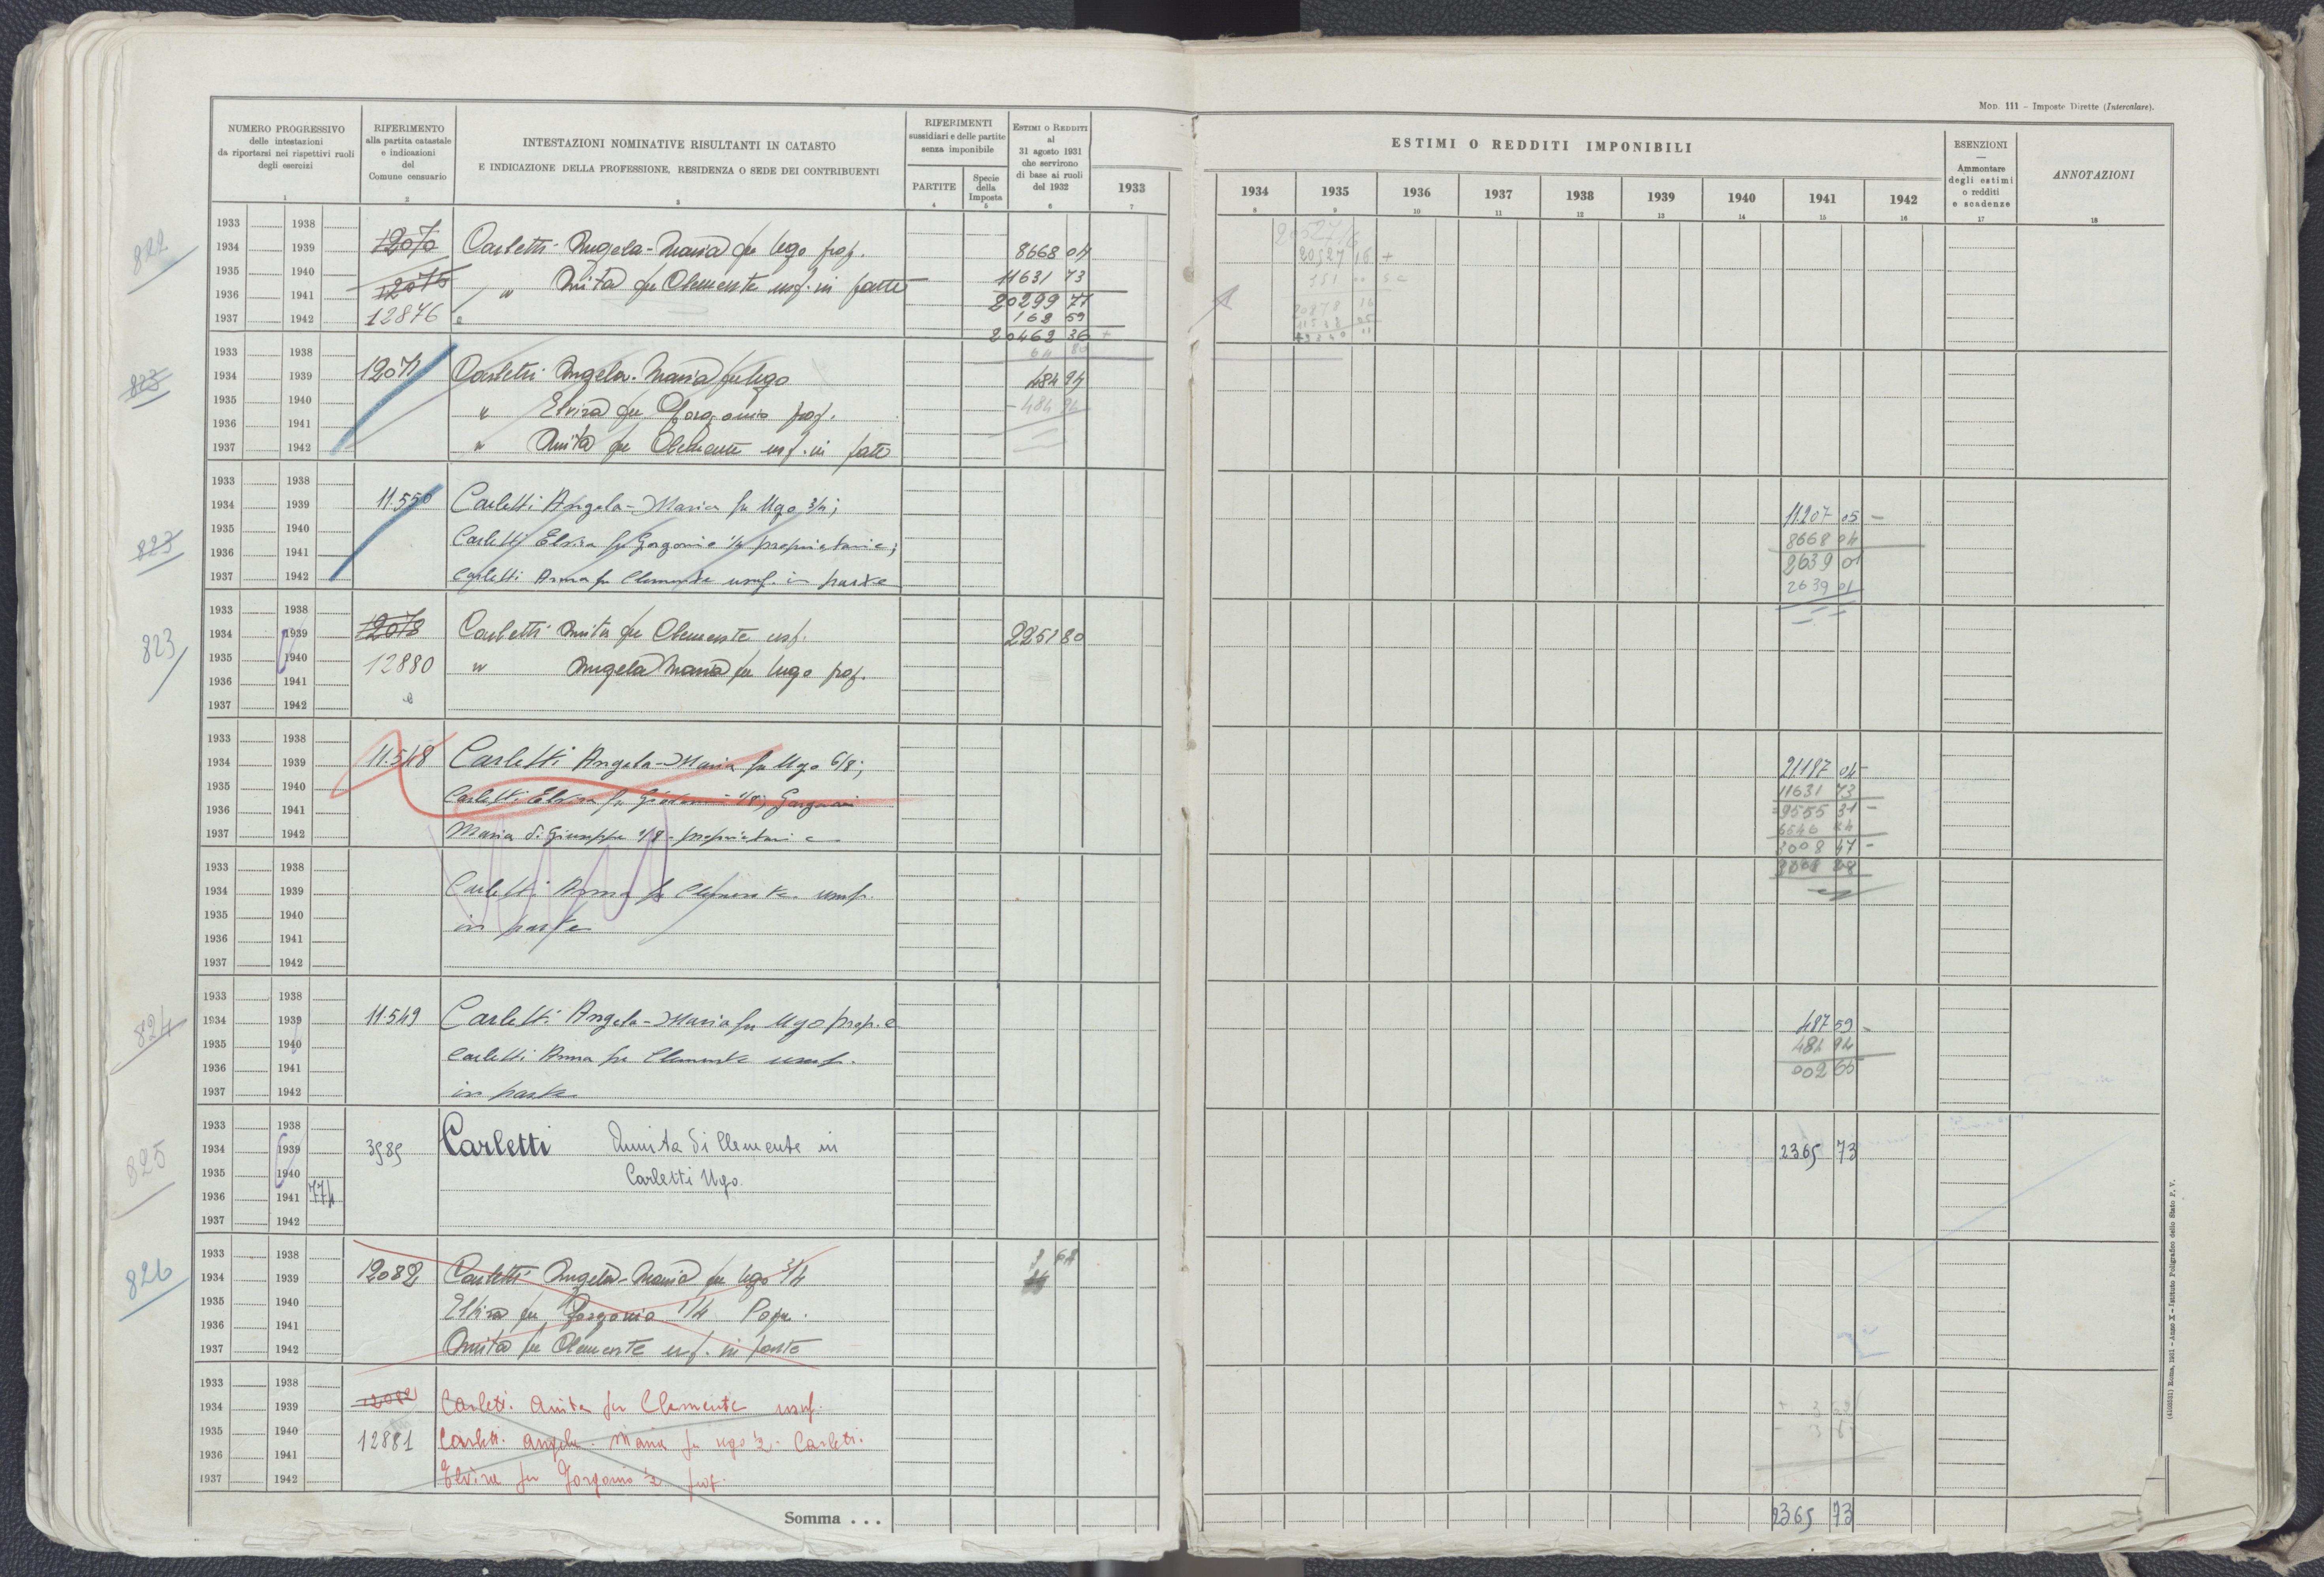 MOD. 111 - Imposte Dirette (Intercalare).
NUMERO PROGRESSIVO
delle intestazioni
da riportarsi nei rispettivi ruoli
degli esercizi
1
RIFERIMENTO
alla partita catastale
e indicazioni
del
Comune censuario
2
INTESTAZIONI NOMINATIVE RISULTANTI IN CATASTO
E INDICAZIONE DELLA PROFESSIONE, RESIDENZA O SEDE DEI CONTRIBUENTI
3
RIFERIMENTI
sussidiari e delle partite
senza imponibile
PARTITE
4
Specie
della
Imposta
5
ESTIMI O REDDITI
al
31 agosto 1931
che servirono
di base ai ruoli
del 1932
6
1933
7
ESTIMI O REDDITI IMPONIBILI
1934 1935 1936 1937 1938 1939 1940 1941 1942
8 9 10 11 12 13 14 15 16
ESENZIONI
Ammontare
degli estimi
o redditi
e scadenze
17
ANNOTAZIONI
18
822
1933 1938
1934 1939 12070 Carletti Angela-Maria fu Ugo prop. 8668 04 20527 16 +
1935 1940 12075 " Anita fu Clemente usf. in parte 11631 73
1936 1941 20299 77
1937 1942 12876 e 162 59
20462 36 +
823
1933 1938
1934 1939 12071 Carletti Angela-Maria fu Ugo 484 94
1935 1940 " Elvira fu Gorgonio prop. - 484 94
1936 1941
1937 1942 " Anita fu Clemente usf. in parte
823
1933 1938
1934 1939 11.550 Carletti Angela-Maria fu Ugo 3/4; 11.207 05 -
1935 1940 Carletti Elvira fu Gorgonio 1/4 proprietarie; 8668 04
1936 1941 2639 01
1937 1942 Carletti Anna fu Clemente usuf. in parte 2639 01
823
1933 1938
1934 1939 12078 Carletti Anita fu Clemente usf. 2251 80
1935 1940 12880 " Angela Maria fu Ugo prop.
1936 1941
1937 1942 e
1933 1938
1934 1939 11.548 Carletti Angela-Maria fu Ugo 6/8; 21.187 04
1935 1940 Carletti Elvira fu 1/8; 11631 73
1936 1941 9555 31 -
1937 1942 Maria di Giuseppe 1/8 - proprietarie 3008 47 -
1933 1938
1934 1939 Carletti Anna fu Clemente usuf.
1935 1940
1936 1941 in parte
1937 1942
824
1933 1938
1934 1939 11.549 Carletti Angela-Maria fu Ugo prop. e 487 59 -
1935 1940 Carletti Anna fu Clemente usuf. 484 94
1936 1941 002 65
1937 1942 in parte
825
1933 1938
1934 1939 3585 Carletti Annita di Clemente in 2365 73
1935 1940 Carletti Ugo.
1936 1941 774
1937 1942
826
1933 1938
1934 1939 12082 Carletti Angela-Maria fu Ugo 3/4
1935 1940 Elvira fu Gorgonio 1/4 Popr.
1936 1941
1937 1942 Anita fu Clemente usf. in parte
1933 1938
1934 1939 12082 Carleti Anita fu Clemente usuf.
1935 1940
1936 1941 12881 Carleti Angela Maria fu Ugo 1/2 - Carleti
1937 1942 Elvira fu Gorgonio 1/2 prop.
Somma . . . 2365 73
(4100551) Roma, 1931 - Anno X - Istituto Poligrafico dello Stato P. V.